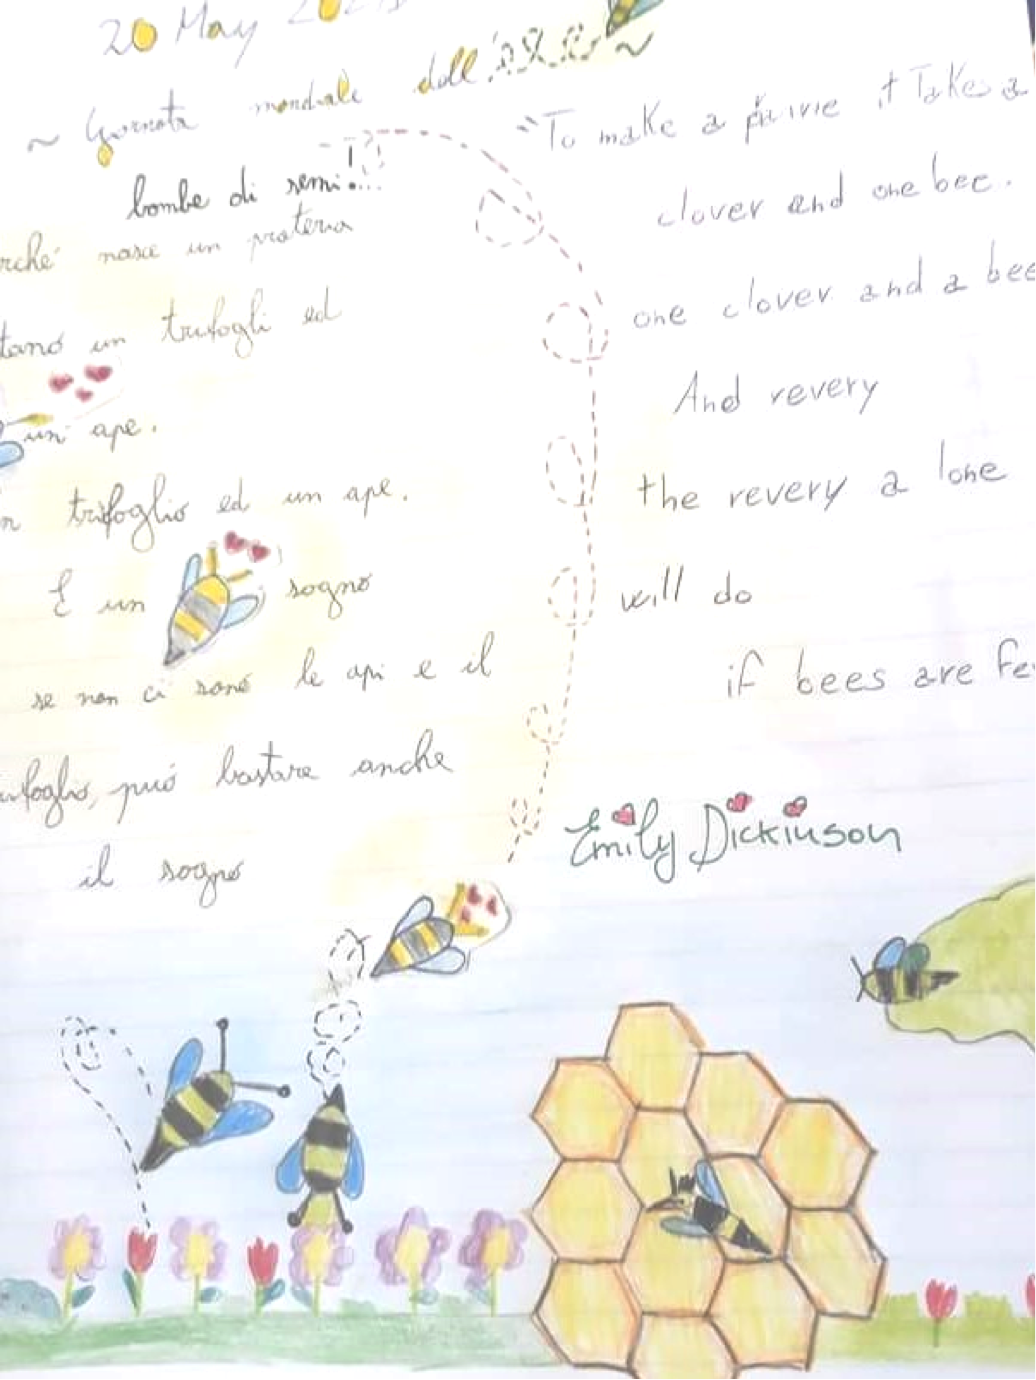 20 May
~ Giornata mondiale dell'
bombe di semi!...
rché nasce un prateria
tano un trifogli ed
un' ape.
n trifoglio ed un ape.
E un sogno
se non ci sono le api e il
ifoglio, può bastare anche
il sogno
"To make a prairie it Takes a
clover and one bee.
one clover and a bee
And revery
the revery a lone
will do
if bees are fe
Emily Dickinson